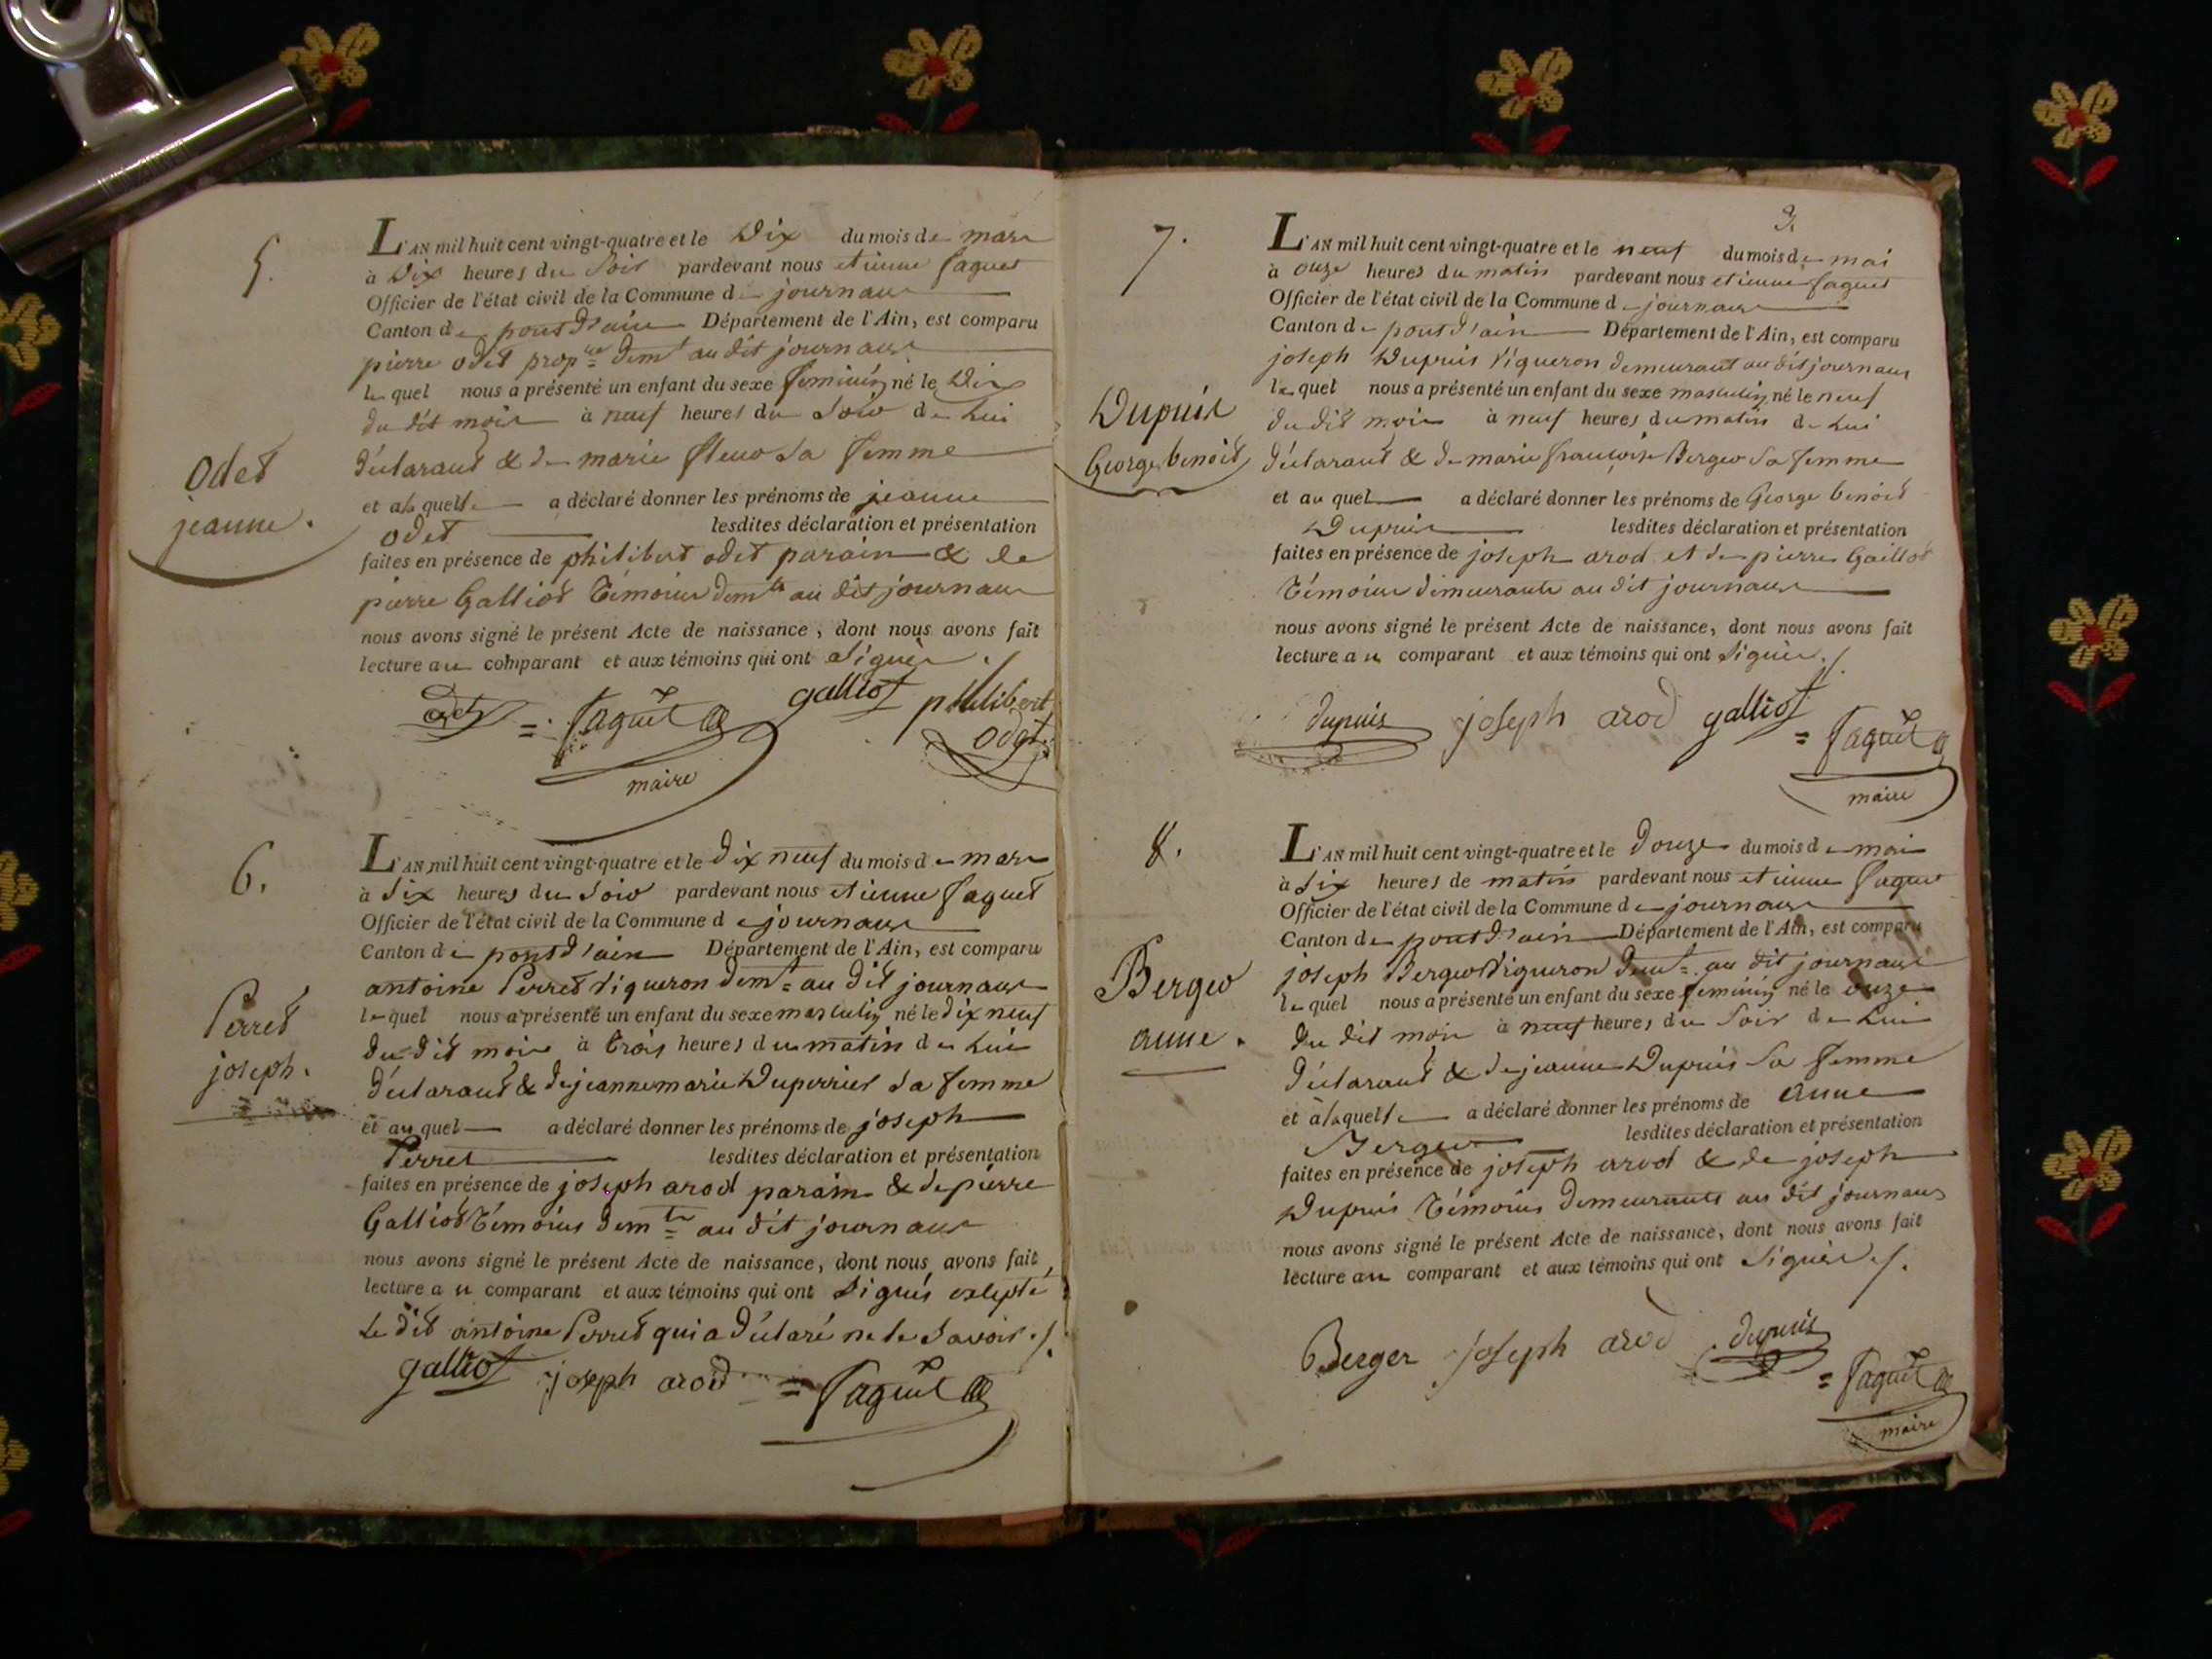 5.
L'AN mil huit cent vingt-quatre et le Dix du mois de mars
à Dix heures du Soir pardevant nous etienne faguet
Officier de l'état civil de la Commune de journaux
Canton de pont d'ain Département de l'Ain, est comparu
pierre odet prop.re demt au dit journaux
le quel nous a présenté un enfant du sexe feminin né le Dix
du dit mois à neuf heures du Soir de Lui
Odet
jeanne.
déclarant & de marie fleur Sa femme
et a la quelle a déclaré donner les prénoms de jeanne
odet lesdites déclaration et présentation
faites en présence de philibert odet parain & de
pierre Galliot Témoins demts au dit journaux
nous avons signé le présent Acte de naissance, dont nous avons fait
lecture au comparant et aux témoins qui ont Signés ./
odet = faguet galliot philibert
odet
maire
6.
L'AN mil huit cent vingt-quatre et le dix neuf du mois de mars
à Six heures du Soir pardevant nous etienne faguet
Officier de l'état civil de la Commune de journaux
Canton de pont d'ain Département de l'Ain, est comparu
antoine Perret Vigneron demt au dit journaux
le quel nous a présenté un enfant du sexe masculin né le dix neuf
Perret
joseph.
du dit mois à trois heures du matin de Lui
déclarant & de jeanne marie Duperrier Sa femme
et au quel a déclaré donner les prénoms de joseph
Perret lesdites déclaration et présentation
faites en présence de joseph arod parain & de pierre
Galliot Témoins demts au dit journaux
nous avons signé le présent Acte de naissance, dont nous avons fait
lecture au comparant et aux témoins qui ont Signés exlepté
Le dit antoine Perret qui a déclaré ne le Savoir ./
galliot joseph arod = faguet
3.
7.
L'AN mil huit cent vingt-quatre et le neuf du mois de mai
à onze heures du matin pardevant nous etienne faguet
Officier de l'état civil de la Commune de journaux
Canton de pont d'ain Département de l'Ain, est comparu
joseph Dupuis Vigneron demeurant au dit journaux
le quel nous a présenté un enfant du sexe masculin né le neuf
Dupuis
George benoit
du dit mois à neuf heures du matin de Lui
déclarant & de marie francoise Berger Sa femme
et au quel a déclaré donner les prénoms de George benoit
Dupuis lesdites déclaration et présentation
faites en présence de joseph arod et de pierre Gaillot
Témoins demeurants au dit journaux
nous avons signé le présent Acte de naissance, dont nous avons fait
lecture au comparant et aux témoins qui ont Signés ./
dupuis joseph arod galliot
= faguet
maire
8.
L'AN mil huit cent vingt-quatre et le Douze du mois de mai
à Six heures de matin pardevant nous etienne faguet
Officier de l'état civil de la Commune de journaux
Canton de pont d'ain Département de l'Ain, est comparu
joseph Berger Vigneron demt au dit journaux
le quel nous a présenté un enfant du sexe feminin né le onze
Berger
anne.
du dit mois à neuf heures du Soir de Lui
déclarant & de jeanne Dupuis Sa femme
et à la quelle a déclaré donner les prénoms de Anne
Berger lesdites déclaration et présentation
faites en présence de joseph arod & de joseph
Dupuis Témoins demeurants au dit journaux
nous avons signé le présent Acte de naissance, dont nous avons fait
lecture au comparant et aux témoins qui ont Signés ./.
Berger joseph arod dupuis
= faguet
maire